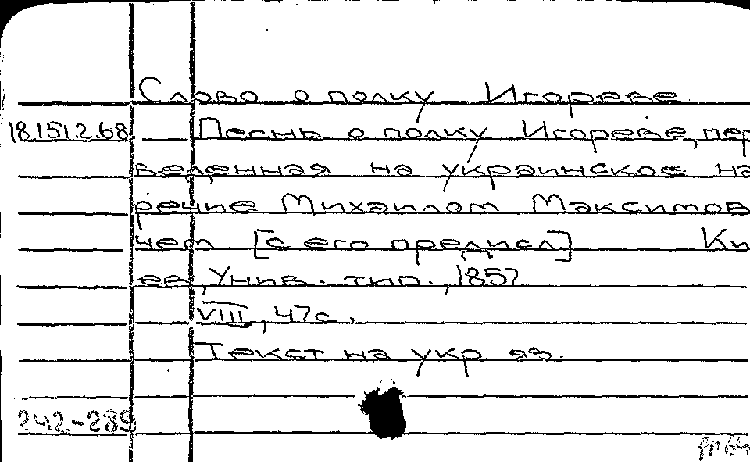 Слово о полку Игореве
18.151.2.68 Песнь о полку Игореве, пер
веденная на украинское на
речие Михаилом Максимов
чем [с его предисл] Ки
ев, Унив. тип., 1857
VIII, 47 с.
Текст на укр яз.
242-289